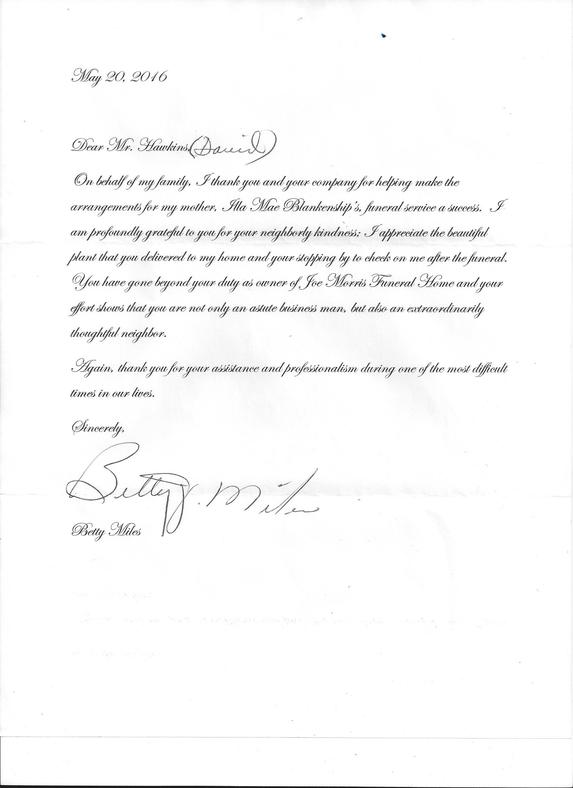 May 20, 2016
Dear Mr. Hawkins, (David)
On behalf of my family, I thank you and your company for helping make the
arrangements for my mother, Illa Mae Blankenship's, funeral service a success. I
am profoundly grateful to you for your neighborly kindness; I appreciate the beautiful
plant that you delivered to my home and your stopping by to check on me after the funeral.
You have gone beyond your duty as owner of Joe Morris Funeral Home and your
effort shows that you are not only an astute business man, but also an extraordinarily
thoughtful neighbor.
Again, thank you for your assistance and professionalism during one of the most difficult
times in our lives.
Sincerely,
Betty J. Miles
Betty Miles